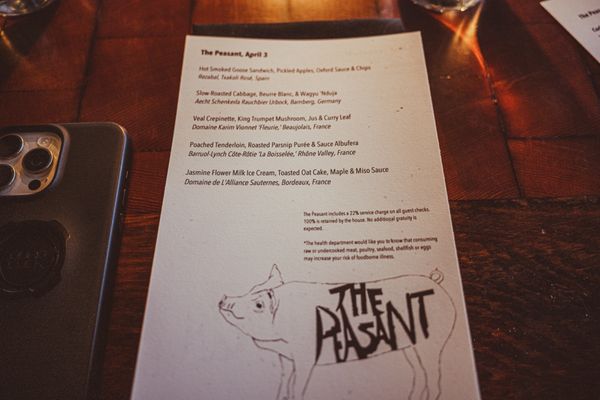 The Peasant, April 3
Hot Smoked Goose Sandwich, Pickled Apples, Oxford Sauce & Chips
Rezabal, Txakoli Rosé, Spain
Slow-Roasted Cabbage, Beurre Blanc, & Wagyu 'Nduja
Aecht Schenkerla Rauchbier Urbock, Bamberg, Germany
Veal Crepinette, King Trumpet Mushroom, Jus & Curry Leaf
Domaine Karim Vionnet 'Fleurie,' Beaujolais, France
Poached Tenderloin, Roasted Parsnip Purée & Sauce Albufera
Barruol-Lynch Côte-Rôtie 'La Boisselée,' Rhône Valley, France
Jasmine Flower Milk Ice Cream, Toasted Oat Cake, Maple & Miso Sauce
Domaine de L'Alliance Sauternes, Bordeaux, France
The Peasant includes a 22% service charge on all guest checks.
100% is retained by the house. No additional gratuity is
expected.
*The health department would like you to know that consuming
raw or undercooked meat, poultry, seafood, shellfish or eggs
may increase your risk of foodborne illness.
THE
PEASANT